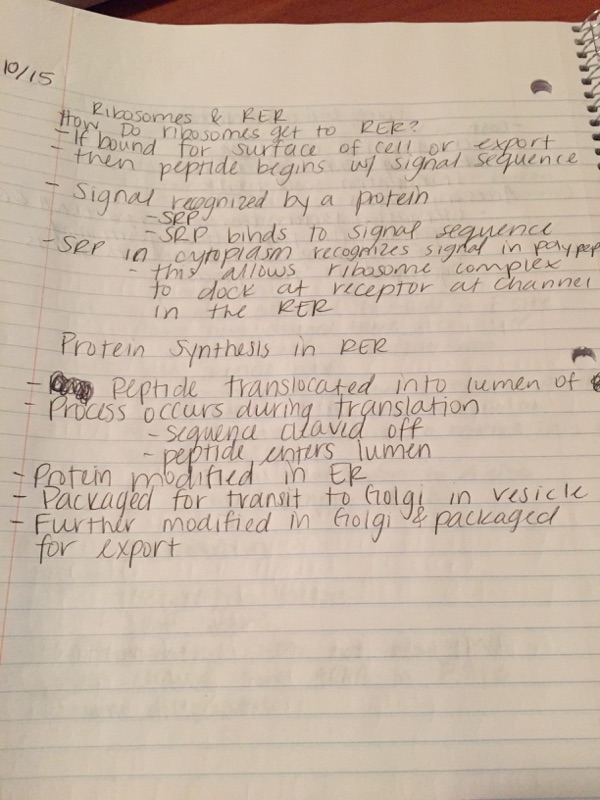 10/15
Ribosomes & RER
How Do ribosomes get to RER?
- If bound for surface of cell or export
- then peptide begins w/ signal sequence
- Signal recognized by a protein
- SRP
- SRP binds to signal sequence
- SRP in cytoplasm recognizes signal in polypep
- this allows ribosome complex
to dock at receptor at channel
in the RER
Protein Synthesis in RER
- Peptide translocated into lumen of
- Process occurs during translation
- sequence cleaved off
- peptide enters lumen
- Protein modified in ER
- Packaged for transit to Golgi in vesicle
- Further modified in Golgi & packaged
for export